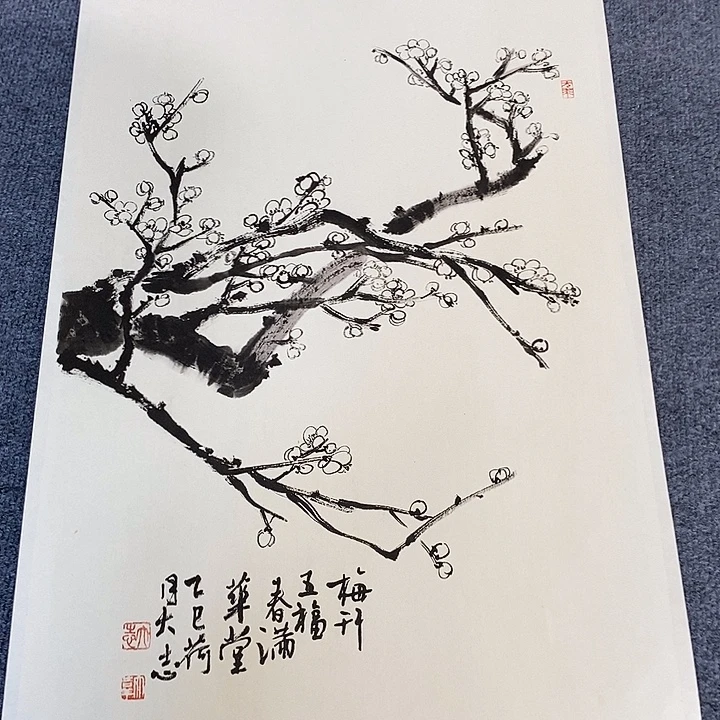 梅开
五福
春满
華堂
乙巳荷
月大志